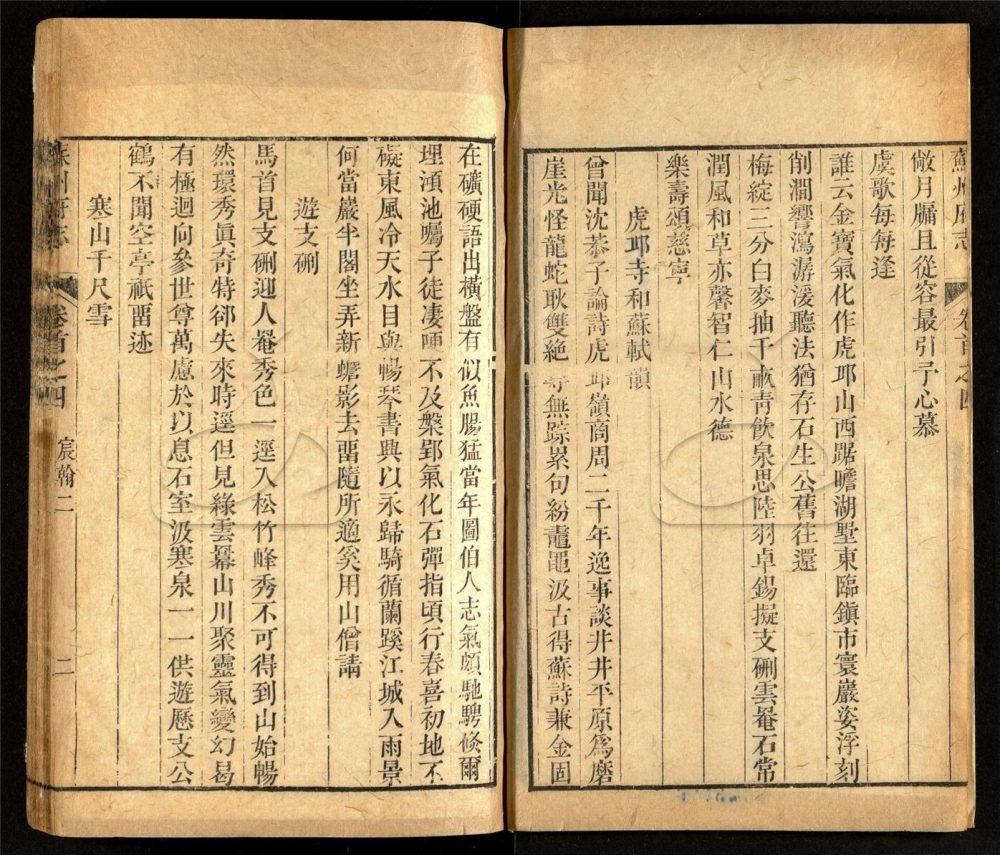 蘇州府志 卷首之四
敞月牖且從容最引予心慕
虞歌每每逢
誰云金寶氣化作虎邱山西踞瞻湖墅東臨鎮市寰巖姿浮刻
削澗響瀉潺湲聽法猶存石生公舊往還
梅綻三分白麥抽千畝青飲泉思陸羽卓錫擬支硎雲罨石常
潤風和草亦馨智仁山水德
樂壽頌慈寧
虎邱寺和蘇軾韻
曾聞沈恭子論詩虎邱嶺商周二千年逸事談井井平原為磨
崖光怪龍蛇耿雙絕 無踪累句紛鼃黽汲古得蘇詩兼金固
在礦硬語出橫盤有似魚腸猛當年圖伯人志氣頗馳騁倏爾
埋湏池囑子徒凄哽不及槃郢氣化石彈指頃行春喜初地不
礙東風冷天水目與暢琴書興以永歸騎循蘭蹊江城入雨景
何當巖半閣坐弄新蟾影去畱隨所適奚用山僧請
遊支硎
馬首見支硎迎人罨秀色一逕入松竹峰秀不可得到山始暢
然環秀眞奇特郤失來時逕但見綠雲羃山川聚靈氣變幻曷
有極迴向參世尊萬慮於以息石室汲寒泉一一供遊歷支公
鶴不聞空亭祇畱迹
寒山千尺雪
蘇州府志 卷首之四 宸翰二 二